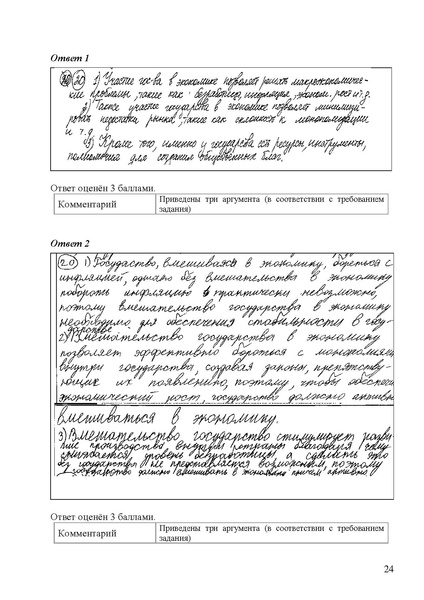 Ответ 1
30 1) Участие гос-ва в экономике позволяет решать макроэкономичес-
кие проблемы, такие как безработица, инфляция, эконом. рост и т.д.
2) Также участие государства в экономике позволяет
недостатки рынка, такие как склонность к монополизации
и т.д.
3) Кроме того, именно у государства есть ресурсы, инструменты,
полномочия для создания общественных благ.
Ответ оценён 3 баллами.
Комментарий
Приведены три аргумента (в соответствии с требованием
задания)
Ответ 2
20 1) Государство, вмешиваясь в экономику, бороться с
инфляцией, однако без вмешательства в экономику
побороть инфляцию практически невозможно,
поэтому вмешательство государства в экономику
необходимо для обеспечения стабильности в госу-
дарстве.
2) Вмешательство государства в экономику
позволяет эффективно бороться с монополией
внутри государства, создавая законы, препятству-
ющие их появлению, поэтому, чтобы
экономический рост, государство должно активно
вмешиваться в экономику.
3) Вмешательство государства стимулирует разви-
тие производства внутри страны благодаря чему
уровень безработицы, а сделать это
без государства не представляется возможным, поэтому
государство должно вмешиваться в экономику причем активно.
Ответ оценён 3 баллами.
Комментарий
Приведены три аргумента (в соответствии с требованием
задания)
24